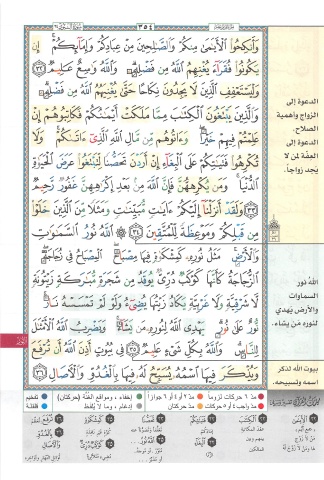 ٣٥٤
وَأَنكِحُوا۟ ٱلْأَيَٰمَىٰ مِنكُمْ وَٱلصَّٰلِحِينَ مِنْ عِبَادِكُمْ وَإِمَآئِكُمْ ۚ إِن
يَكُونُوا۟ فُقَرَآءَ يُغْنِهِمُ ٱللَّهُ مِن فَضْلِهِۦ ۗ وَٱللَّهُ وَٰسِعٌ عَلِيمٌ ﴿٣٢﴾
وَلْيَسْتَعْفِفِ ٱلَّذِينَ لَا يَجِدُونَ نِكَاحًا حَتَّىٰ يُغْنِيَهُمُ ٱللَّهُ مِن فَضْلِهِۦ ۗ
وَٱلَّذِينَ يَبْتَغُونَ ٱلْكِتَٰبَ مِمَّا مَلَكَتْ أَيْمَٰنُكُمْ فَكَاتِبُوهُمْ إِنْ
عَلِمْتُمْ فِيهِمْ خَيْرًا ۖ وَءَاتُوهُم مِّن مَّالِ ٱللَّهِ ٱلَّذِىٓ ءَاتَىٰكُمْ ۚ وَلَا
تُكْرِهُوا۟ فَتَيَٰتِكُمْ عَلَى ٱلْبِغَآءِ إِنْ أَرَدْنَ تَحَصُّنًا لِّتَبْتَغُوا۟ عَرَضَ ٱلْحَيَوٰةِ
ٱلدُّنْيَا ۚ وَمَن يُكْرِههُّنَّ فَإِنَّ ٱللَّهَ مِنۢ بَعْدِ إِكْرَٰهِهِنَّ غَفُورٌ رَّحِيمٌ
﴿٣٣﴾ وَلَقَدْ أَنزَلْنَآ إِلَيْكُمْ ءَايَٰتٍ مُّبَيِّنَٰتٍ وَمَثَلًا مِّنَ ٱلَّذِينَ خَلَوْا۟
مِن قَبْلِكُمْ وَمَوْعِظَةً لِّلْمُتَّقِينَ ﴿٣٤﴾ ٱللَّهُ نُورُ ٱلسَّمَٰوَٰتِ
وَٱلْأَرْضِ ۚ مَثَلُ نُورِهِۦ كَمِشْكَوٰةٍ فِيهَا مِصْبَاحٌ ۖ ٱلْمِصْبَاحُ فِى زُجَاجَةٍ ۖ
ٱلزُّجَاجَةُ كَأَنَّهَا كَوْكَبٌ دُرِّىٌّ يُوقَدُ مِن شَجَرَةٍ مُّبَٰرَكَةٍ زَيْتُونَةٍ
لَّا شَرْقِيَّةٍ وَلَا غَرْبِيَّةٍ يَكَادُ زَيْتُهَا يُضِىٓءُ وَلَوْ لَمْ تَمْسَسْهُ نَارٌ ۚ
نُّورٌ عَلَىٰ نُورٍ ۗ يَهْدِى ٱللَّهُ لِنُورِهِۦ مَن يَشَآءُ ۚ وَيَضْرِبُ ٱللَّهُ ٱلْأَمْثَٰلَ
لِلنَّاسِ ۗ وَٱللَّهُ بِكُلِّ شَىْءٍ عَلِيمٌ ﴿٣٥﴾ فِى بُيُوتٍ أَذِنَ ٱللَّهُ أَن تُرْفَعَ
وَيُذْكَرَ فِيهَا ٱسْمُهُۥ يُسَبِّحُ لَهُۥ فِيهَا بِٱلْغُدُوِّ وَٱلْءَاصَالِ ﴿٣٦﴾
الدعوة إلى
الزواج وأهمية
الصلاح.
الدعوة إلى
العفة لمن لا
يجد زواجاً.
الله نور
السماوات
والأرض يهدي
لنوره من يشاء.
بيوت الله تذكر
اسمه وتسبيحه.